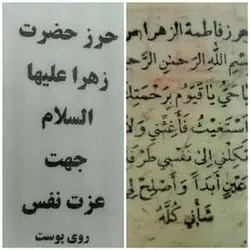 حرز حضرت
زهرا علیها
السلام
جهت
عزت نفس
روی پوست
حرز فاطمة الزهرا س
بسم الله الرحمن الرحیم
یا حي یا قیوم برحمتك
استغیث فأغثني ولا
تكلني إلى نفسي طرفة
عین أبداً و أصلح لي
شأني كله